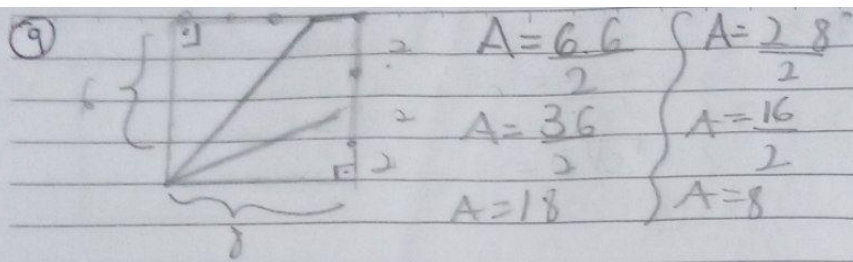 9
6
2
2
2
8
A = 6.6/2
A = 36/2
A = 18
A = 2 8/2
A = 16/2
A = 8